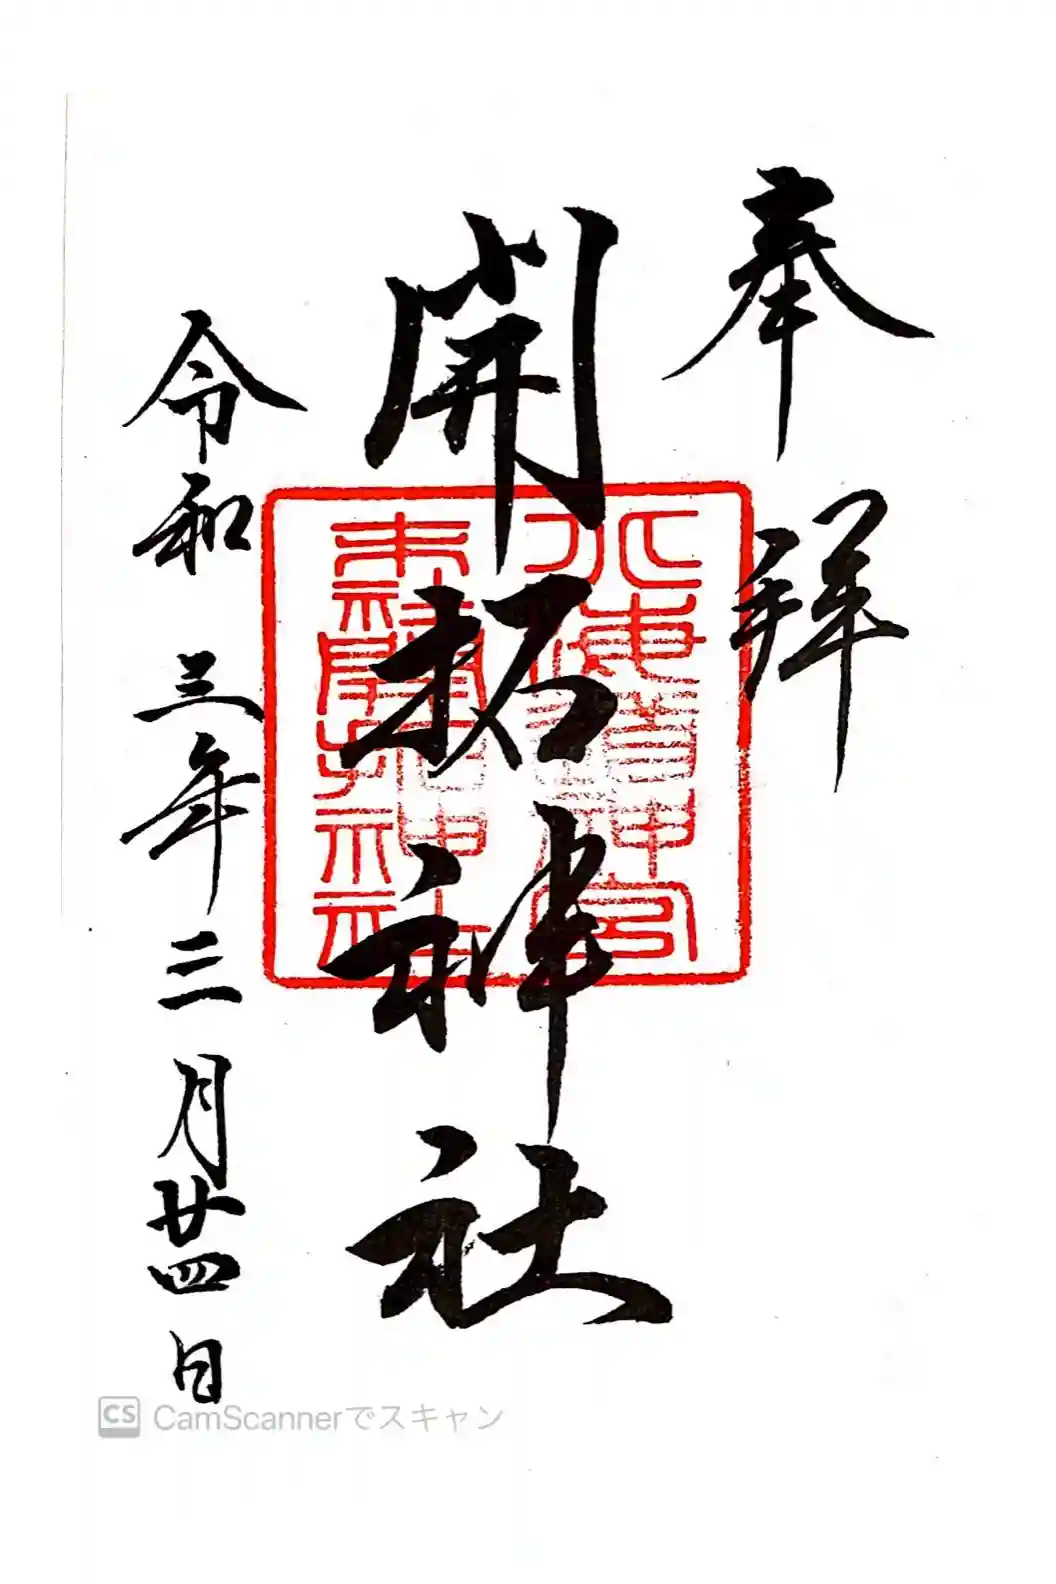 奉拝
開拓神社
令和三年三月廿四日
北海道神宮
末鎮開拓神社
CS CamScannerでスキャン